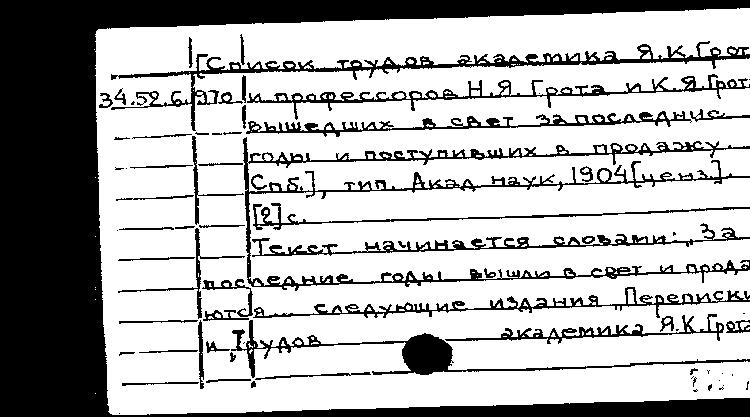 [Список трудов академика Я.К.Грота
34.52.6.970 и профессоров Н.Я.Грота и К.Я.Грота
вышедших в свет за последние
годы и поступивших в продажу.
Спб.], тип. Акад наук, 1904[ценз.].
[2]с.
Текст начинается словами: „За
последние годы вышли в свет и прода
ются... следующие издания „Переписки
и „Трудов академика Я.К.Грота